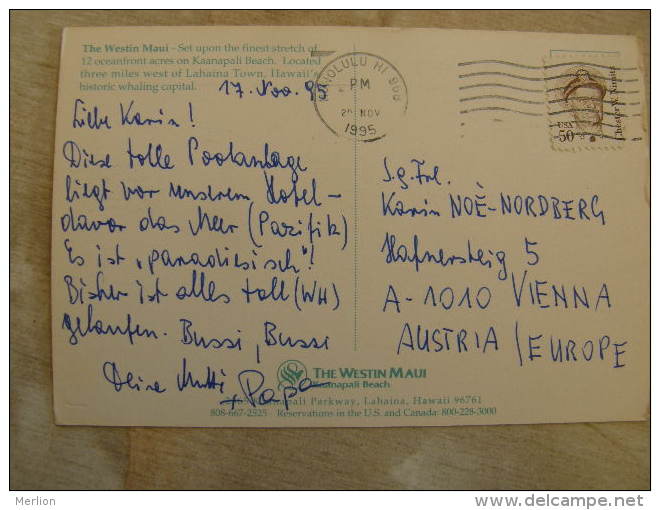 The Westin Maui - Set upon the finest stretch of
12 oceanfront acres on Kaanapali Beach. Located
three miles west of Lahaina Town, Hawaii's
historic whaling capital.
17. Nov. 95
Liebe Karin!
Diese tolle Poolanlage
liegt vor unserem Hotel -
davor das Meer (Pazifik)
Es ist „paradiesisch"!
Bisher ist alles toll (WH)
gelaufen. Bussi, Bussi
Deine Mutti
+ Papa
HONOLULU HI 968
PM
NOV
1995
USA
50
Chester W. Nimitz
S.g. Frl.
Karin NOÈ-NORDBERG
Hafnersteig 5
A-1010 VIENNA
AUSTRIA / EUROPE
THE WESTIN MAUI
Kaanapali Beach
Kaanapali Parkway, Lahaina, Hawaii 96761
808-667-2525 Reservations in the U.S. and Canada 800-228-3000
Merlion
delcampe.net